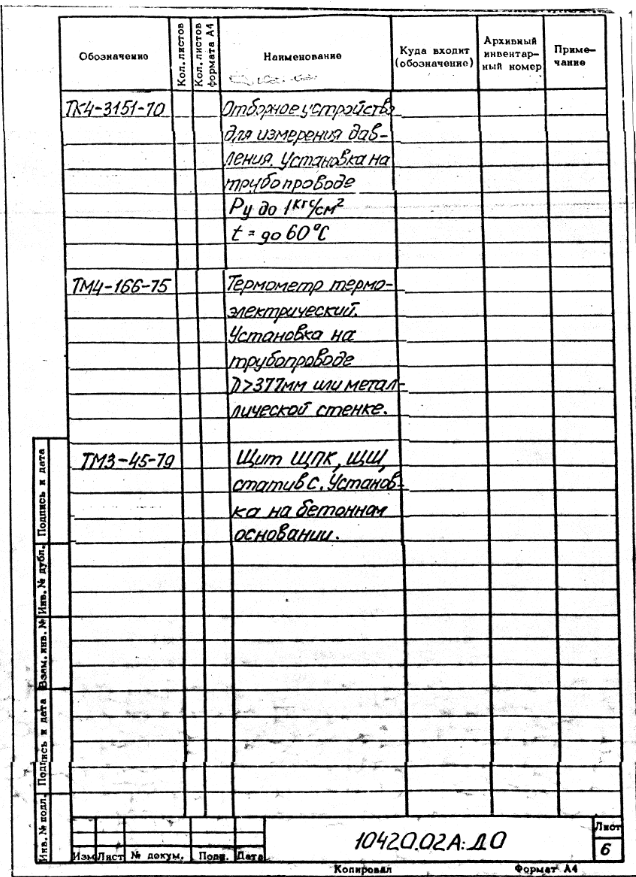 Обозначение
Кол. листов
Кол. листов формата А4
Наименование
Куда входит (обозначение)
Архивный инвентарный номер
Примечание
ТК4-3151-70
Отборное устройство
для измерения дав-
ления. Установка на
трубопроводе
Ру до 1 кгс/см²
t = до 60°С
ТМ4-166-75
Термометр термо-
электрический.
Установка на
трубопроводе
D>377мм или метал-
лической стенке.
ТМ3-45-79
Щит ЩПК, ЩШ,
статив С. Установ-
ка на бетонном
основании.
Инв. № подл.
Подпись и дата
Взам. инв. №
Инв. № дубл.
Подпись и дата
Изм Лист № докум. Подп. Дата
10420.02А:ДО
Лист
6
Копировал Формат А4